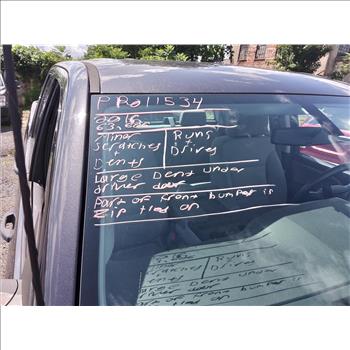 PR011534
2015
Minor
Scratches
+
Dents
Runs
+
Drives
Large Dent under
driver door
Part of front bumper is
Zip tied on